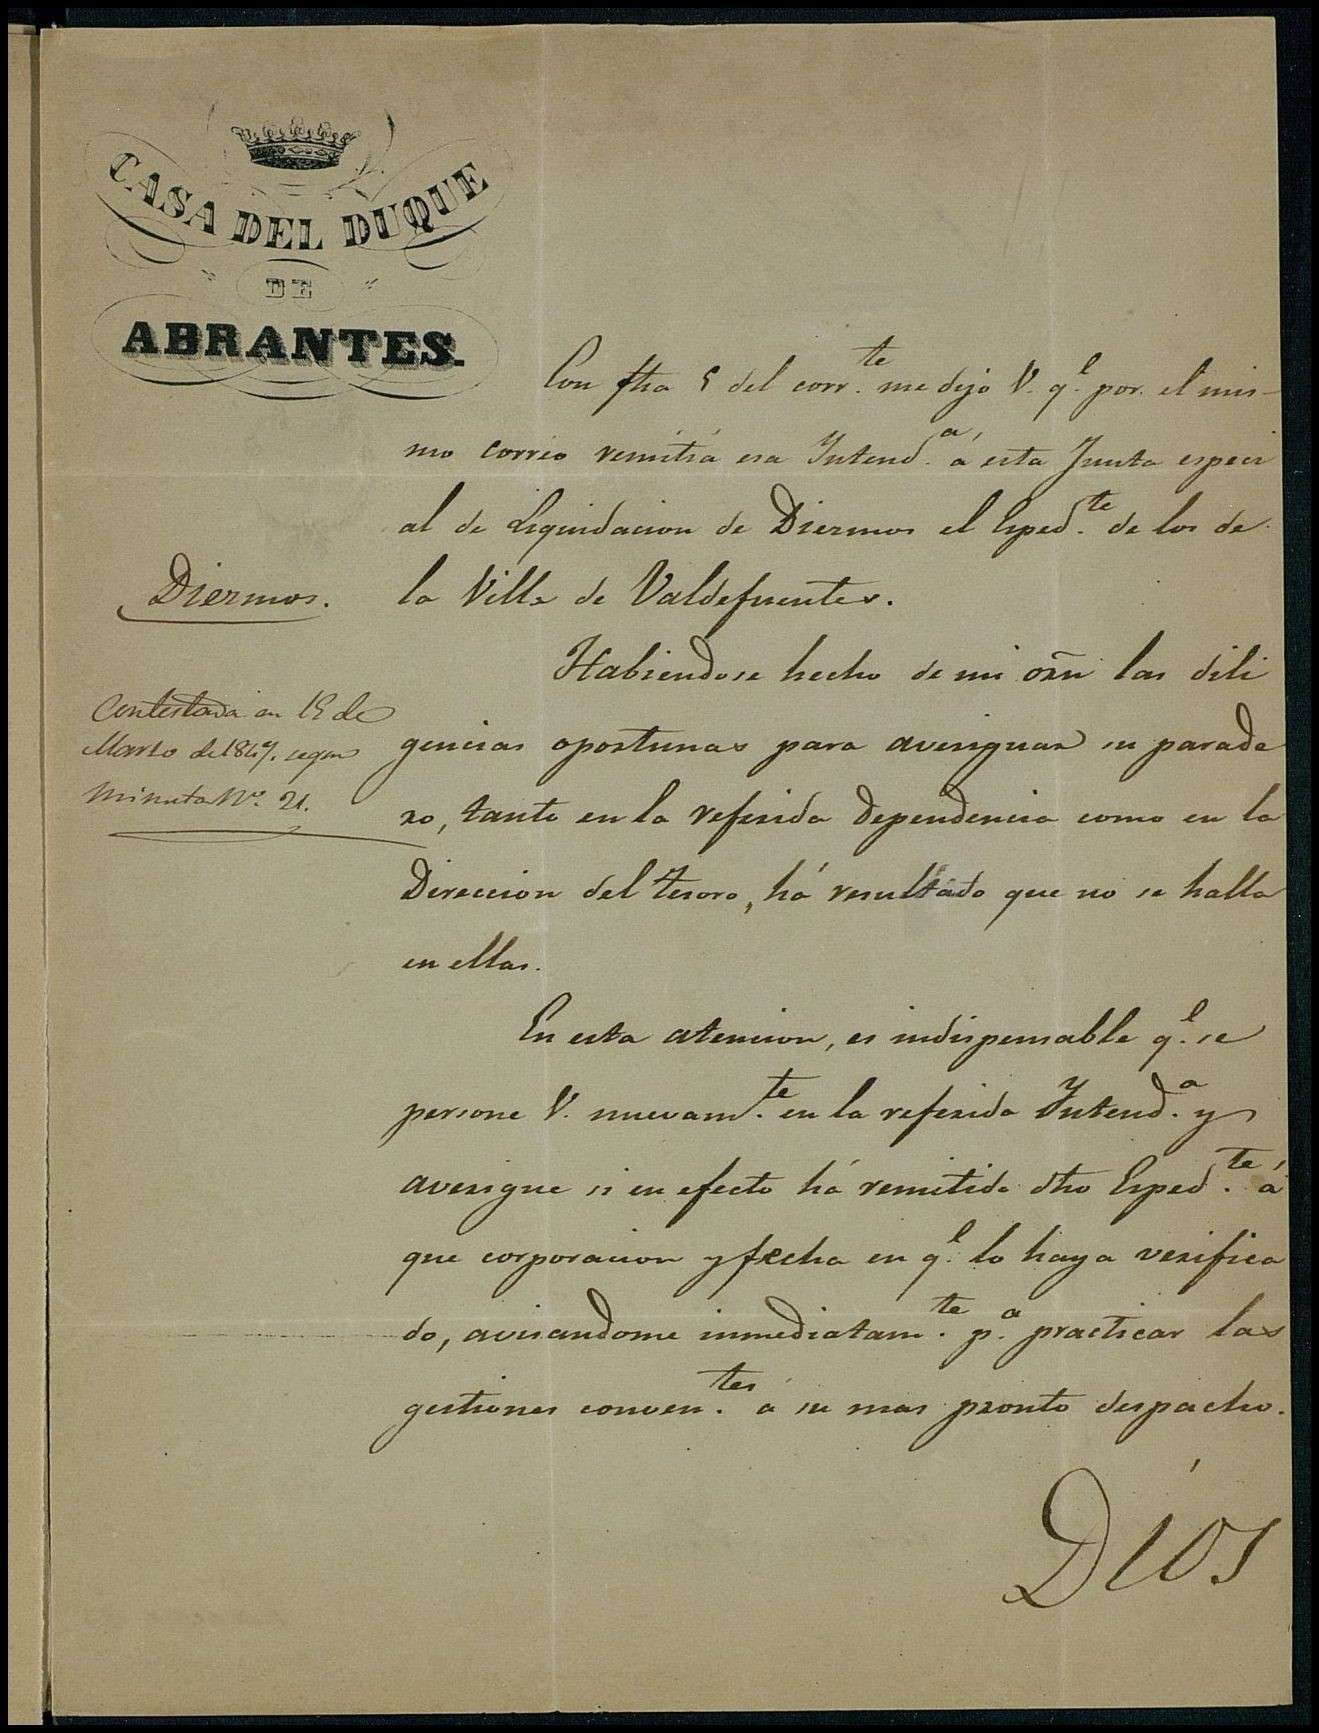 CASA DEL DUQUE
DE
ABRANTES.
Con fha 5 del corr.te me dijo V. q.e por el mis-
mo correo remitia esa Intend.a á esta Junta especi
al de Liquidacion de Diezmos el Esped.te de los de
la Villa de Valdefuentes.
Diezmos.
Habiendose hecho de mi orñ las dili
gencias oportunas para averiguar su parade
ro, tanto en la referida dependencia como en la
Direccion del tesoro, há resultado que no se halla
en ellas.
Contestada en 15 de
Marzo de 1847. segun
minuta N.º 21.
En esta atencion, es indispensable q.e se
persone V. nuevam.te en la referida Intend.a y
averigue si en efecto há remitido dho Esped.te á
que corporacion y fecha en q.e lo haya verifica
do, avisandome inmediatam.te p.a practicar las
gestiones conven.tes á su mas pronto despacho.
Dios